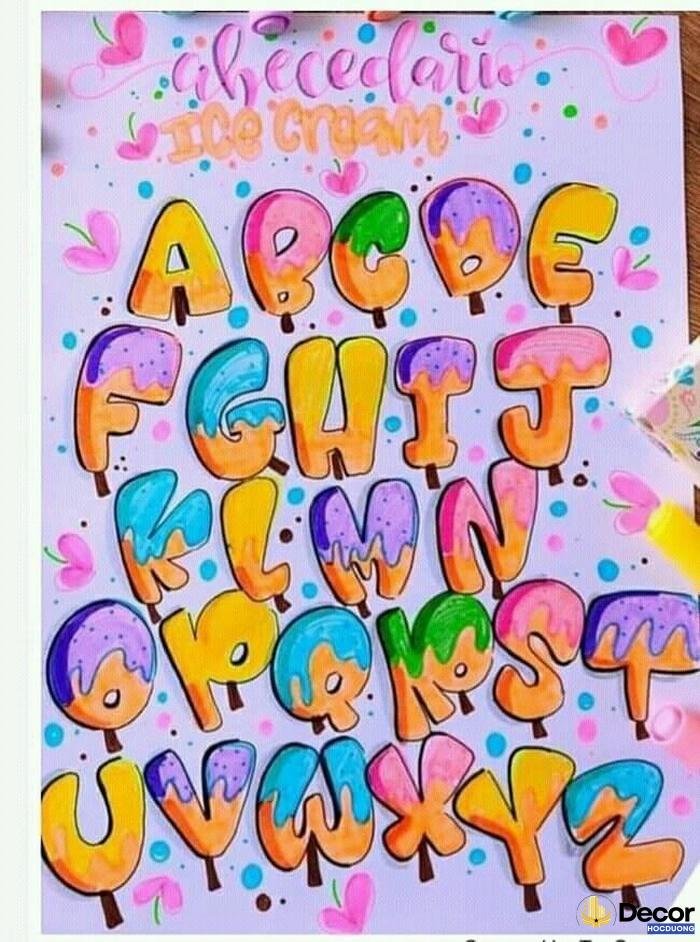 abecedario
Ice Cream
A B C D E
F G H I J
K L M N
O P Q R S T
U V W X Y Z
Decor
HOCDUONG